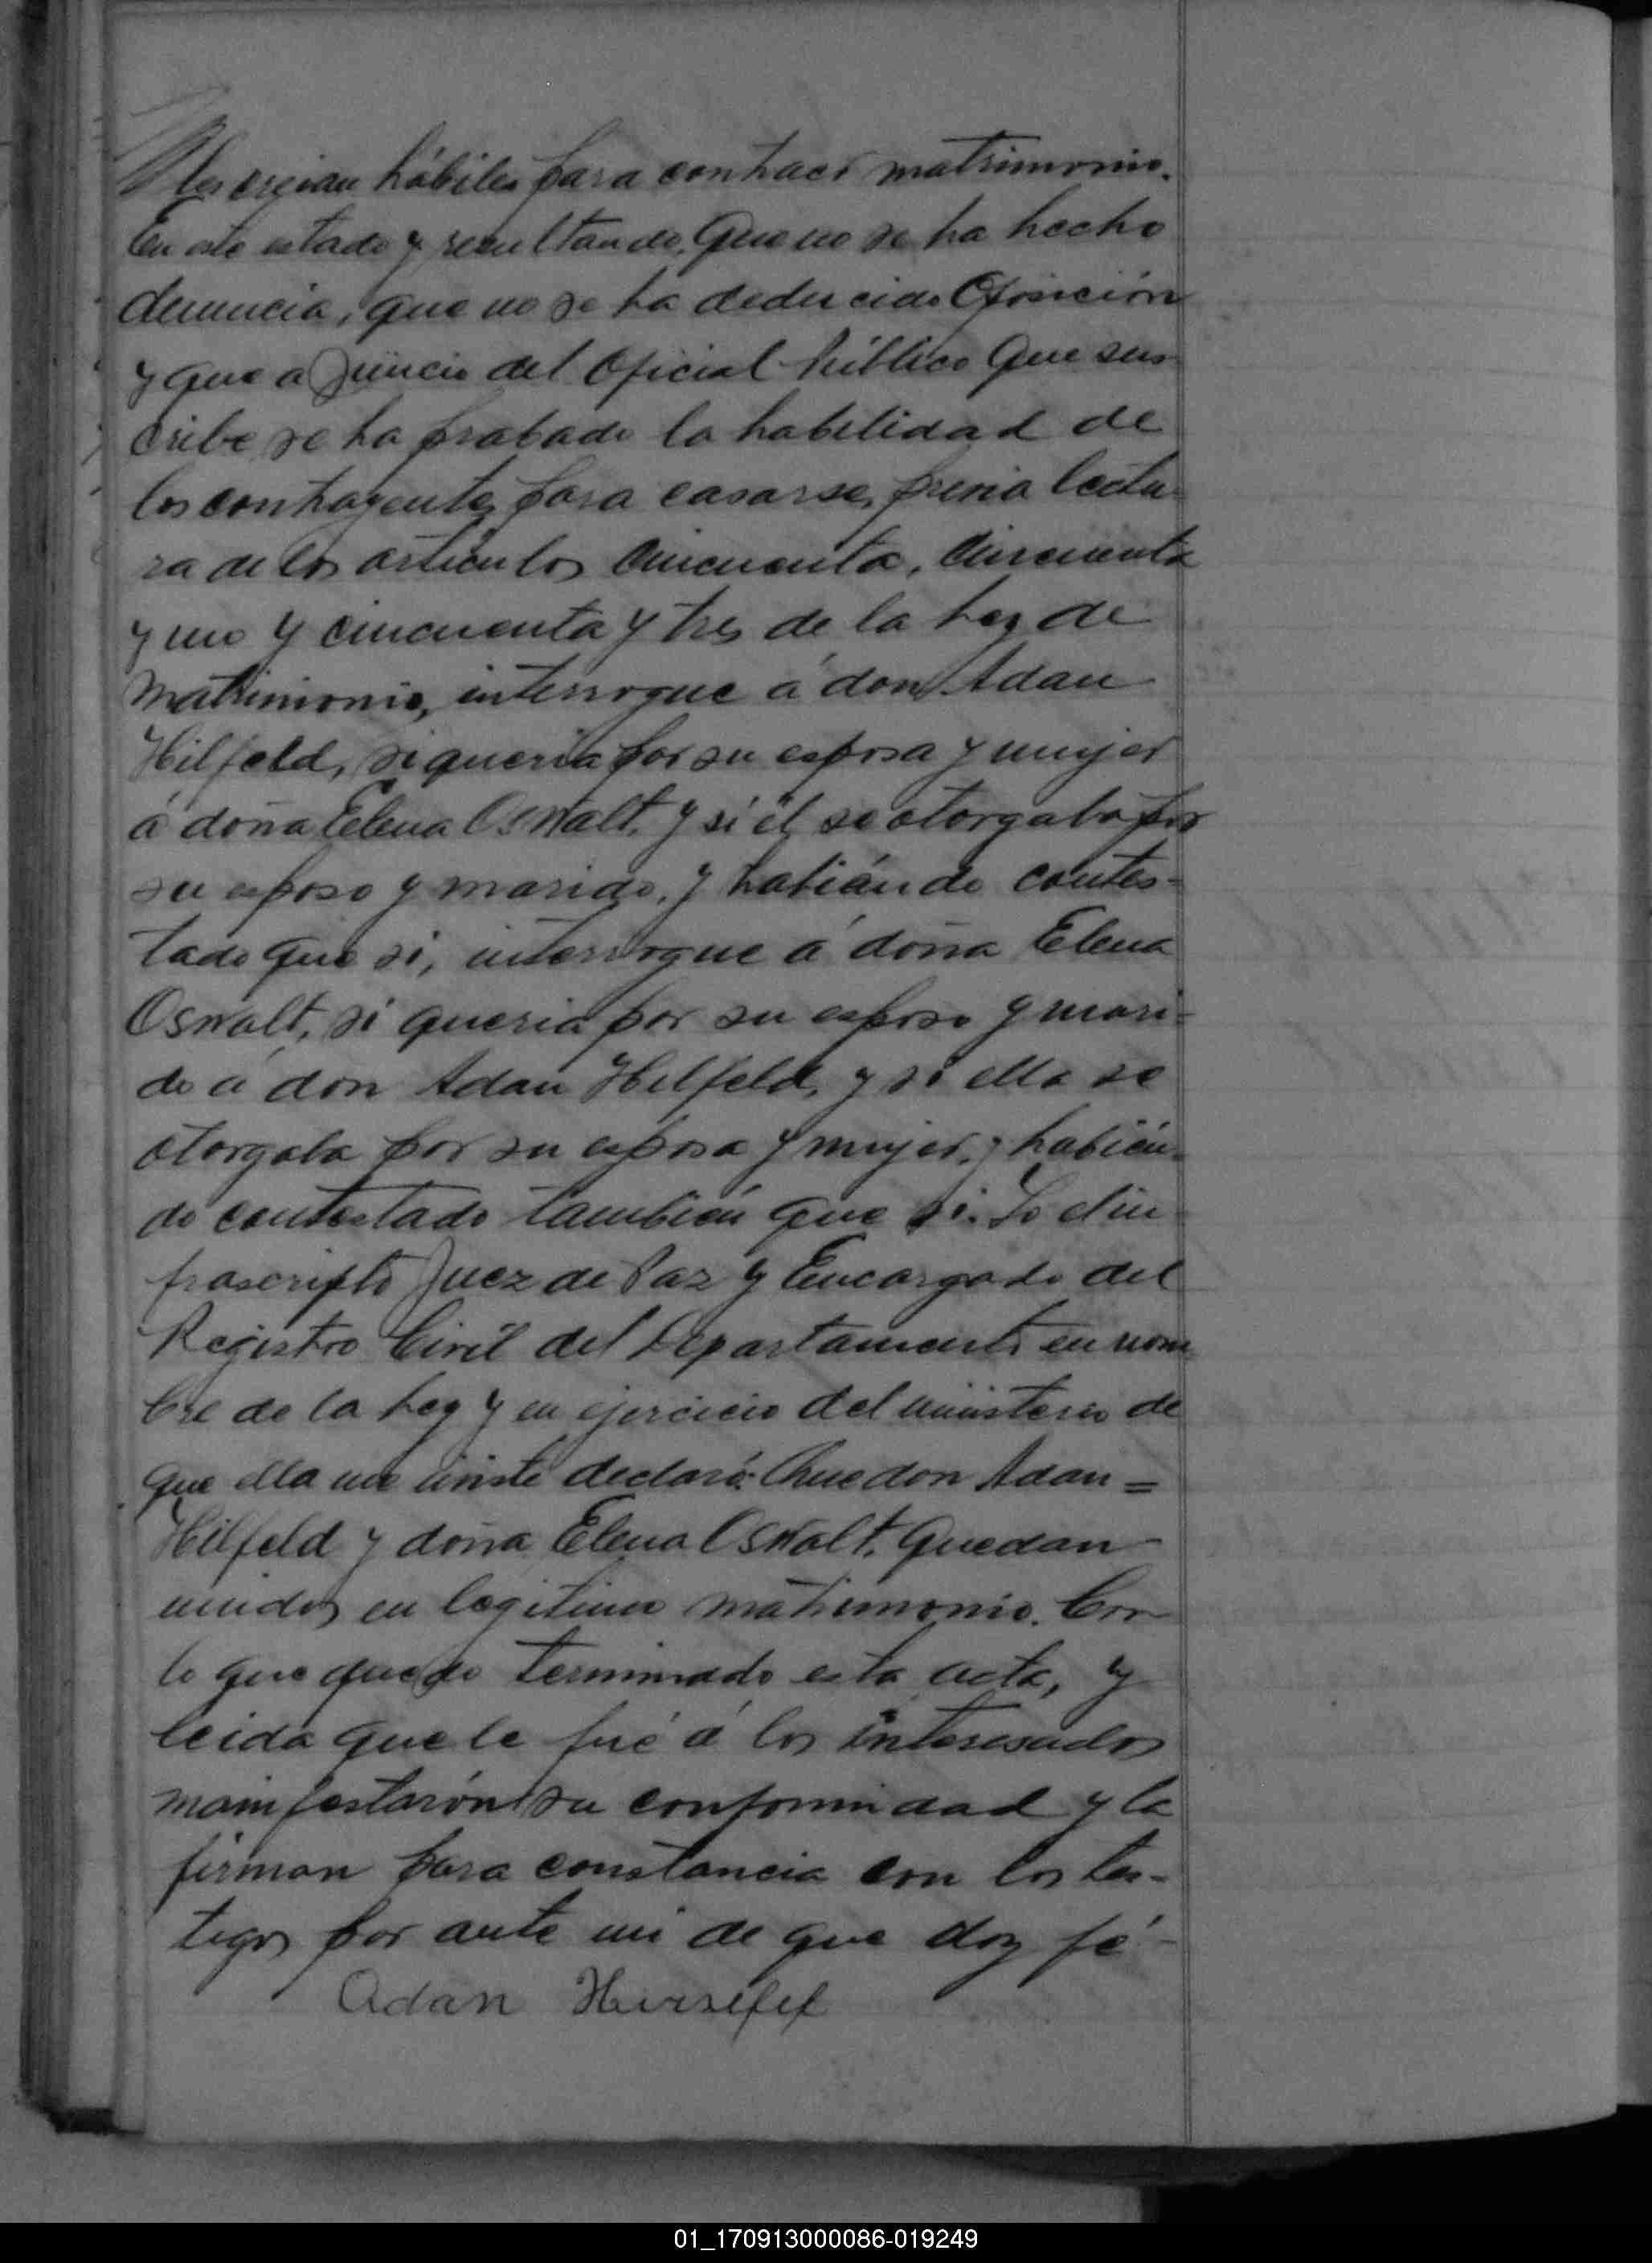 los creian hábiles para contraer matrimonio.
En este estado y resultando, Que no se ha hecho
denuncia, que no se ha deducido Oposición
y que a Juicio del Oficial Público Que sus
cribe se ha probado la habilidad de
los contrayentes para casarse, previa lectu-
ra de los artículos Cincuenta, Cincuenta
y uno y cincuenta y tres de la Ley de
Matrimonio, interrogue á don Adan
Hilfeld, si queria por su esposa y mujer
á doña Elena Oswalt, y si él se otorgaba por
su esposo y marido, y habiéndo contes-
tado que si, interrogue á doña Elena
Oswalt, si queria por su esposo y mari-
do á don Adan Hilfeld, y si ella se
otorgaba por su esposa y mujer, y habién-
do contestado también que si. Yo el in-
frascripto Juez de Paz y Encargado del
Registro Civil del Departamento en nom
bre de la Ley y en ejercicio del ministerio de
que ella me inviste declaró: Que don Adan =
Hilfeld y doña Elena Oswalt, quedan
unidos en legitimo matrimonio. Con
lo que quedo terminado esta acta, y
leida que le fué á los interesados
manifestarón su conformidad y la
firman para constancia con los tes-
tigos por ante mi de que doy fé -
Adan
01_170913000086-019249